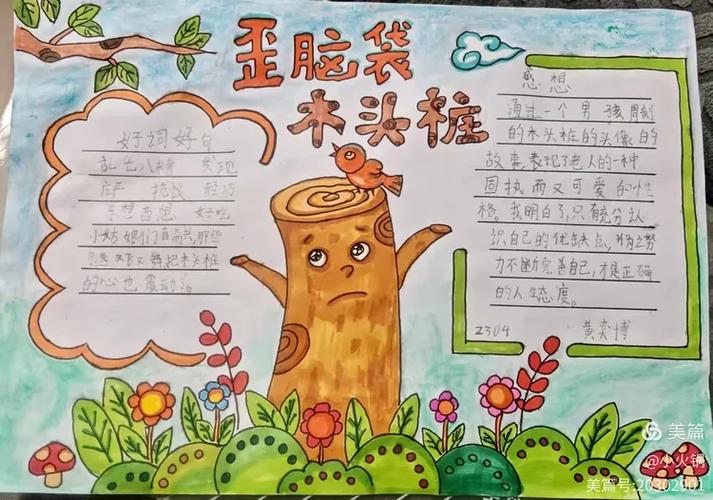 歪脑袋
木头桩
好词好句
乱七八糟 发现
庄严 抗议 轻巧
东想西想 好吃
小姑娘们直高兴,那些
又 舞,把木头桩
的心也震动了。
感想
通过一个男孩用刻
的木头桩的头像的
故事,表现了老人的一种
固执而又可爱的性
格。我明白了,只有充分认
识自己的优缺点,努
力不断完善自己,才是正确
的人生态度。
2304 黄奕博
美篇
@小火锅
美篇号:20302901